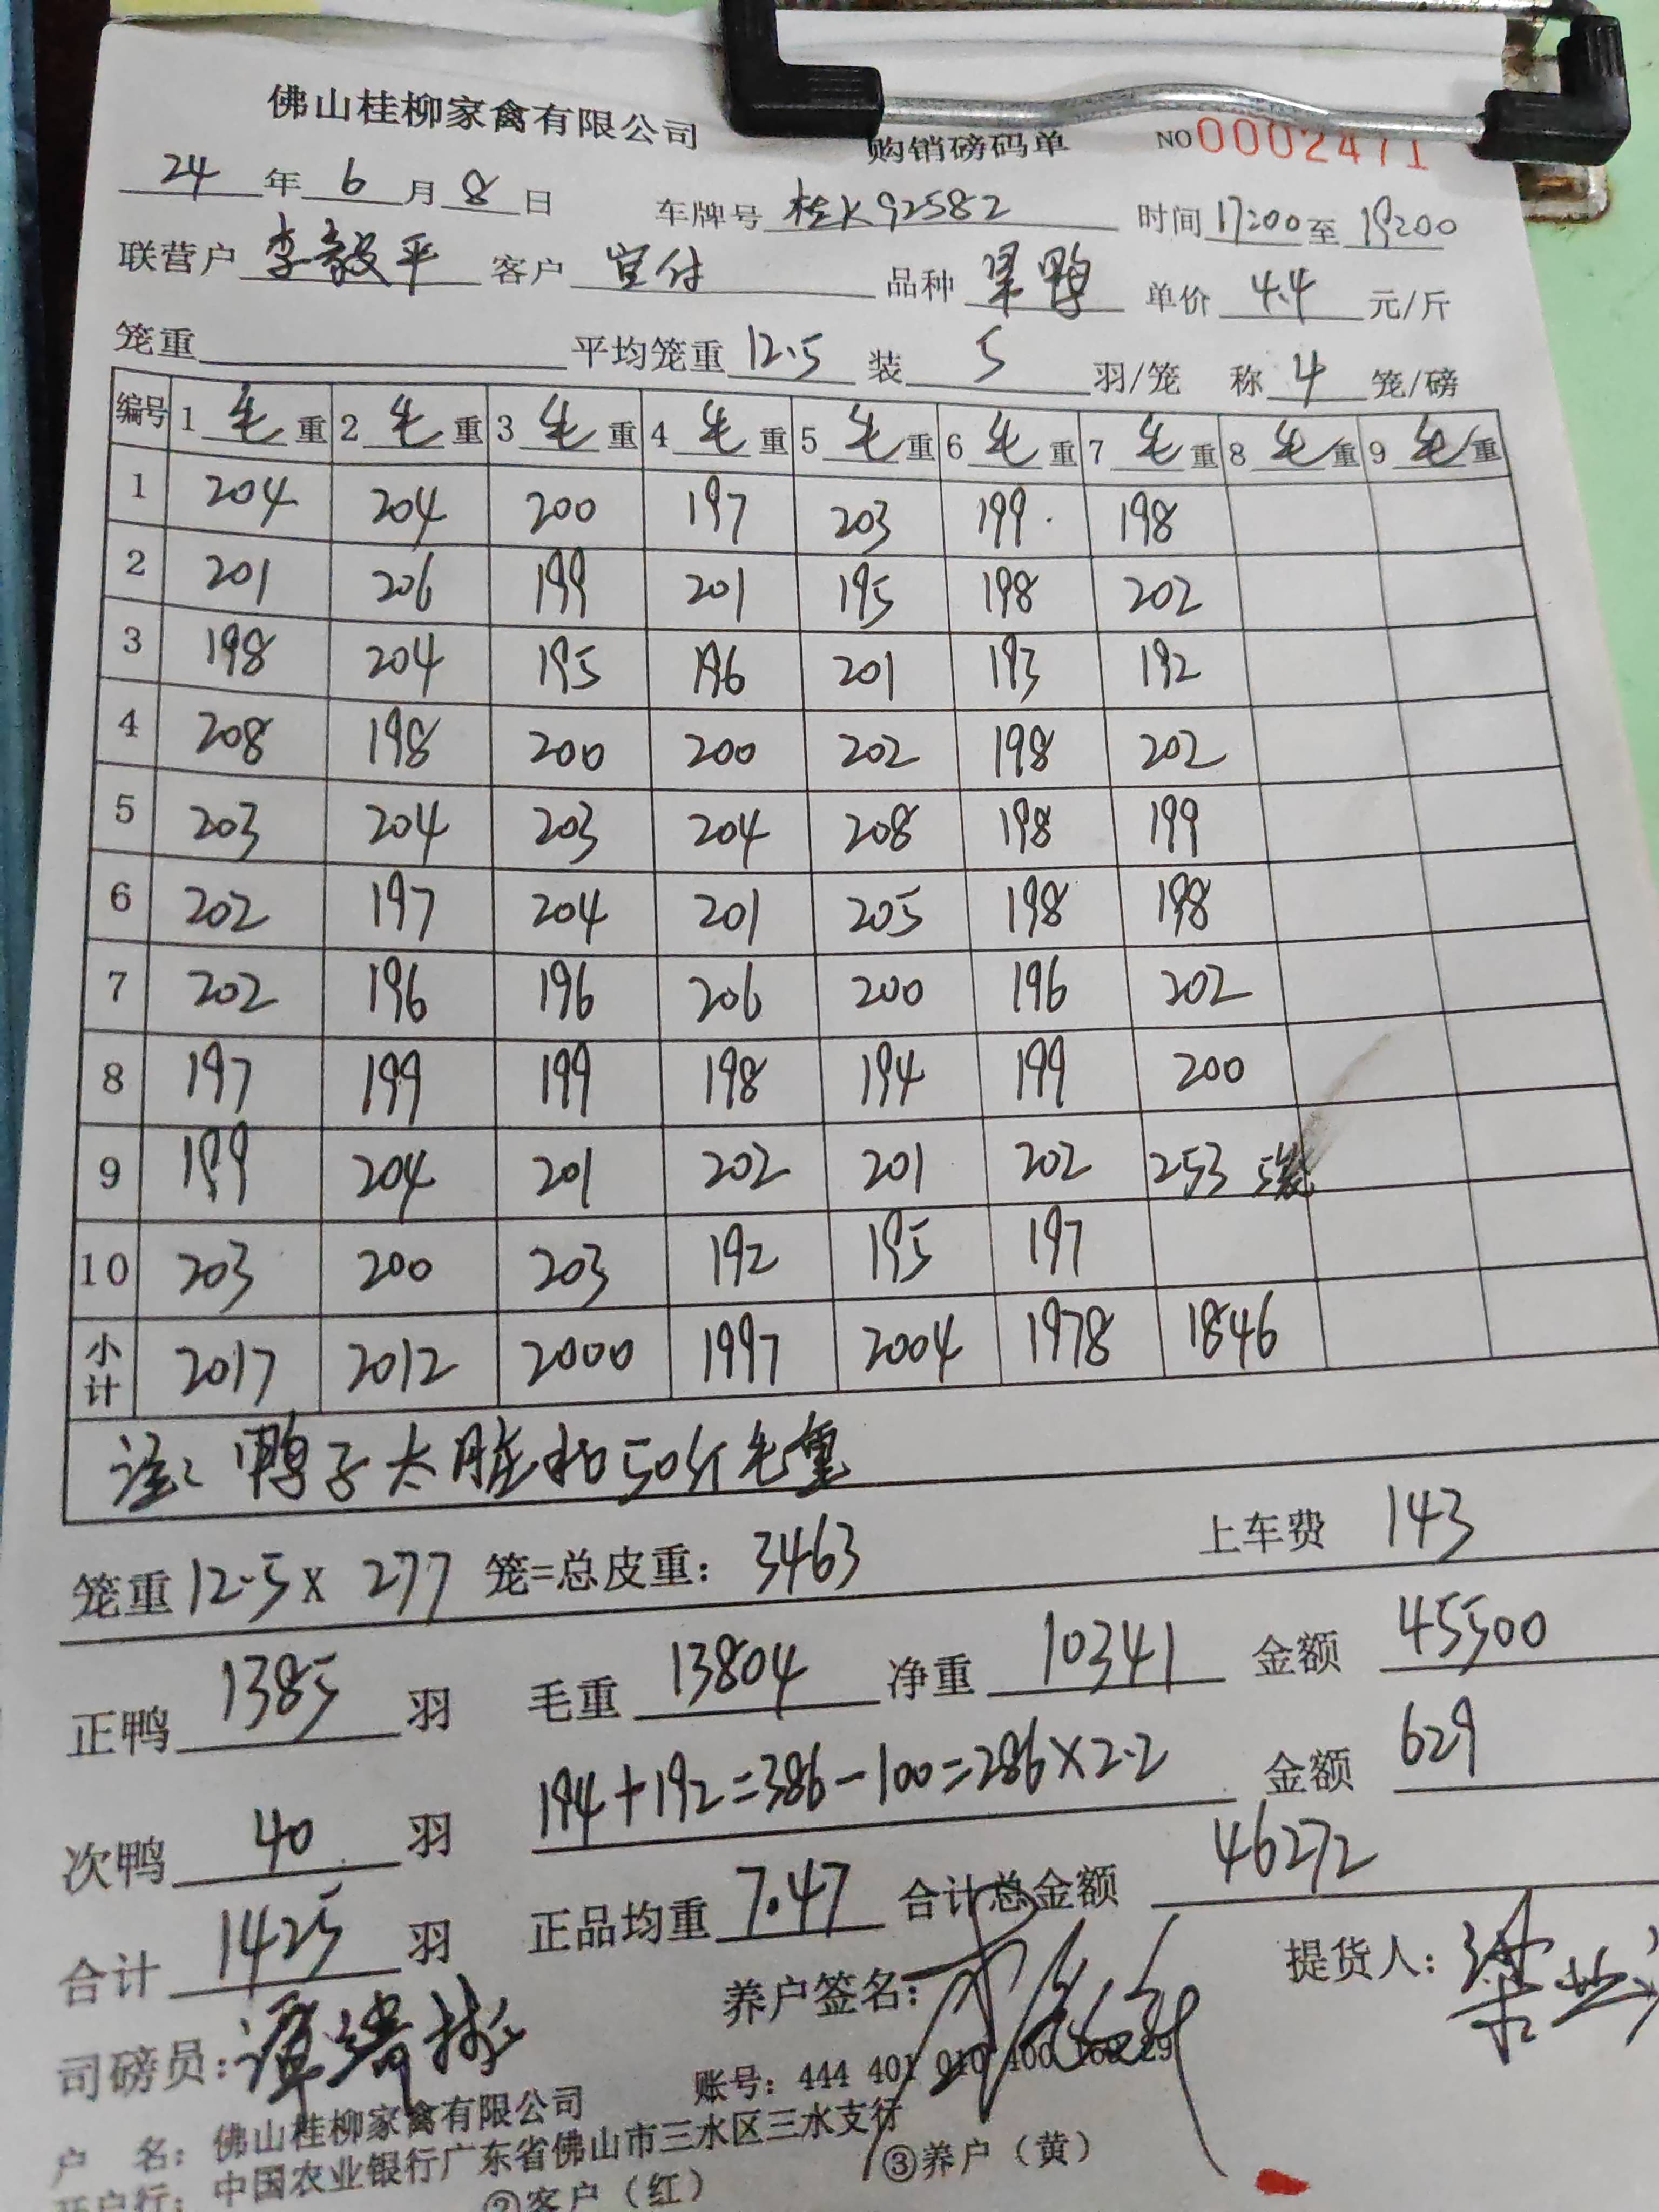 佛山桂柳家禽有限公司 购销磅码单 NO 0002471
24 年 6 月 8 日 车牌号 桂K92582 时间 17:00 至 19:00
联营户 李毅平 客户 宜付 品种 翠鸭 单价 4.4 元/斤
笼重 平均笼重 12.5 装 5 羽/笼 称 4 笼/磅
编号 1 毛 重 2 毛 重 3 毛 重 4 毛 重 5 毛 重 6 毛 重 7 毛 重 8 毛 重 9 毛 重
1 204 204 200 197 203 199 198
2 201 206 199 201 195 198 202
3 198 204 195 196 201 193 192
4 208 198 200 200 202 198 202
5 203 204 203 204 208 198 199
6 202 197 204 201 205 198 198
7 202 196 196 206 200 196 202
8 197 199 199 198 194 199 200
9 199 204 201 202 201 202 253 5笼
10 203 200 203 192 195 197
小计 2017 2012 2000 1997 2004 1978 1846
注: 鸭子太脏扣50斤毛重
笼重 12.5 X 277 笼=总皮重: 3463 上车费 143
正鸭 1385 羽 毛重 13804 净重 10341 金额 45500
次鸭 40 羽 194+192=386-100=286×2.2 金额 629
合计 1425 羽 正品均重 7.47 合计总金额 46272
司磅员: 养户签名: 提货人:
户 名: 佛山桂柳家禽有限公司 账号: 444 401 010 400 29
开户行: 中国农业银行广东省佛山市三水区三水支行
②客户(红) ③养户(黄)